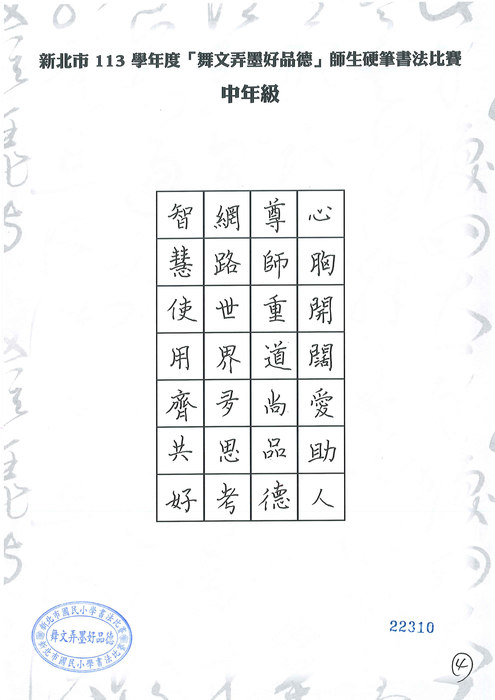 新北市 113 學年度「舞文弄墨好品德」師生硬筆書法比賽
中年級
心胸開闊愛助人
尊師重道尚品德
網路世界多思考
智慧使用齊共好
新北市國民小學書法比賽
舞文弄墨好品德
新北市國民小學書法比賽
22310
4